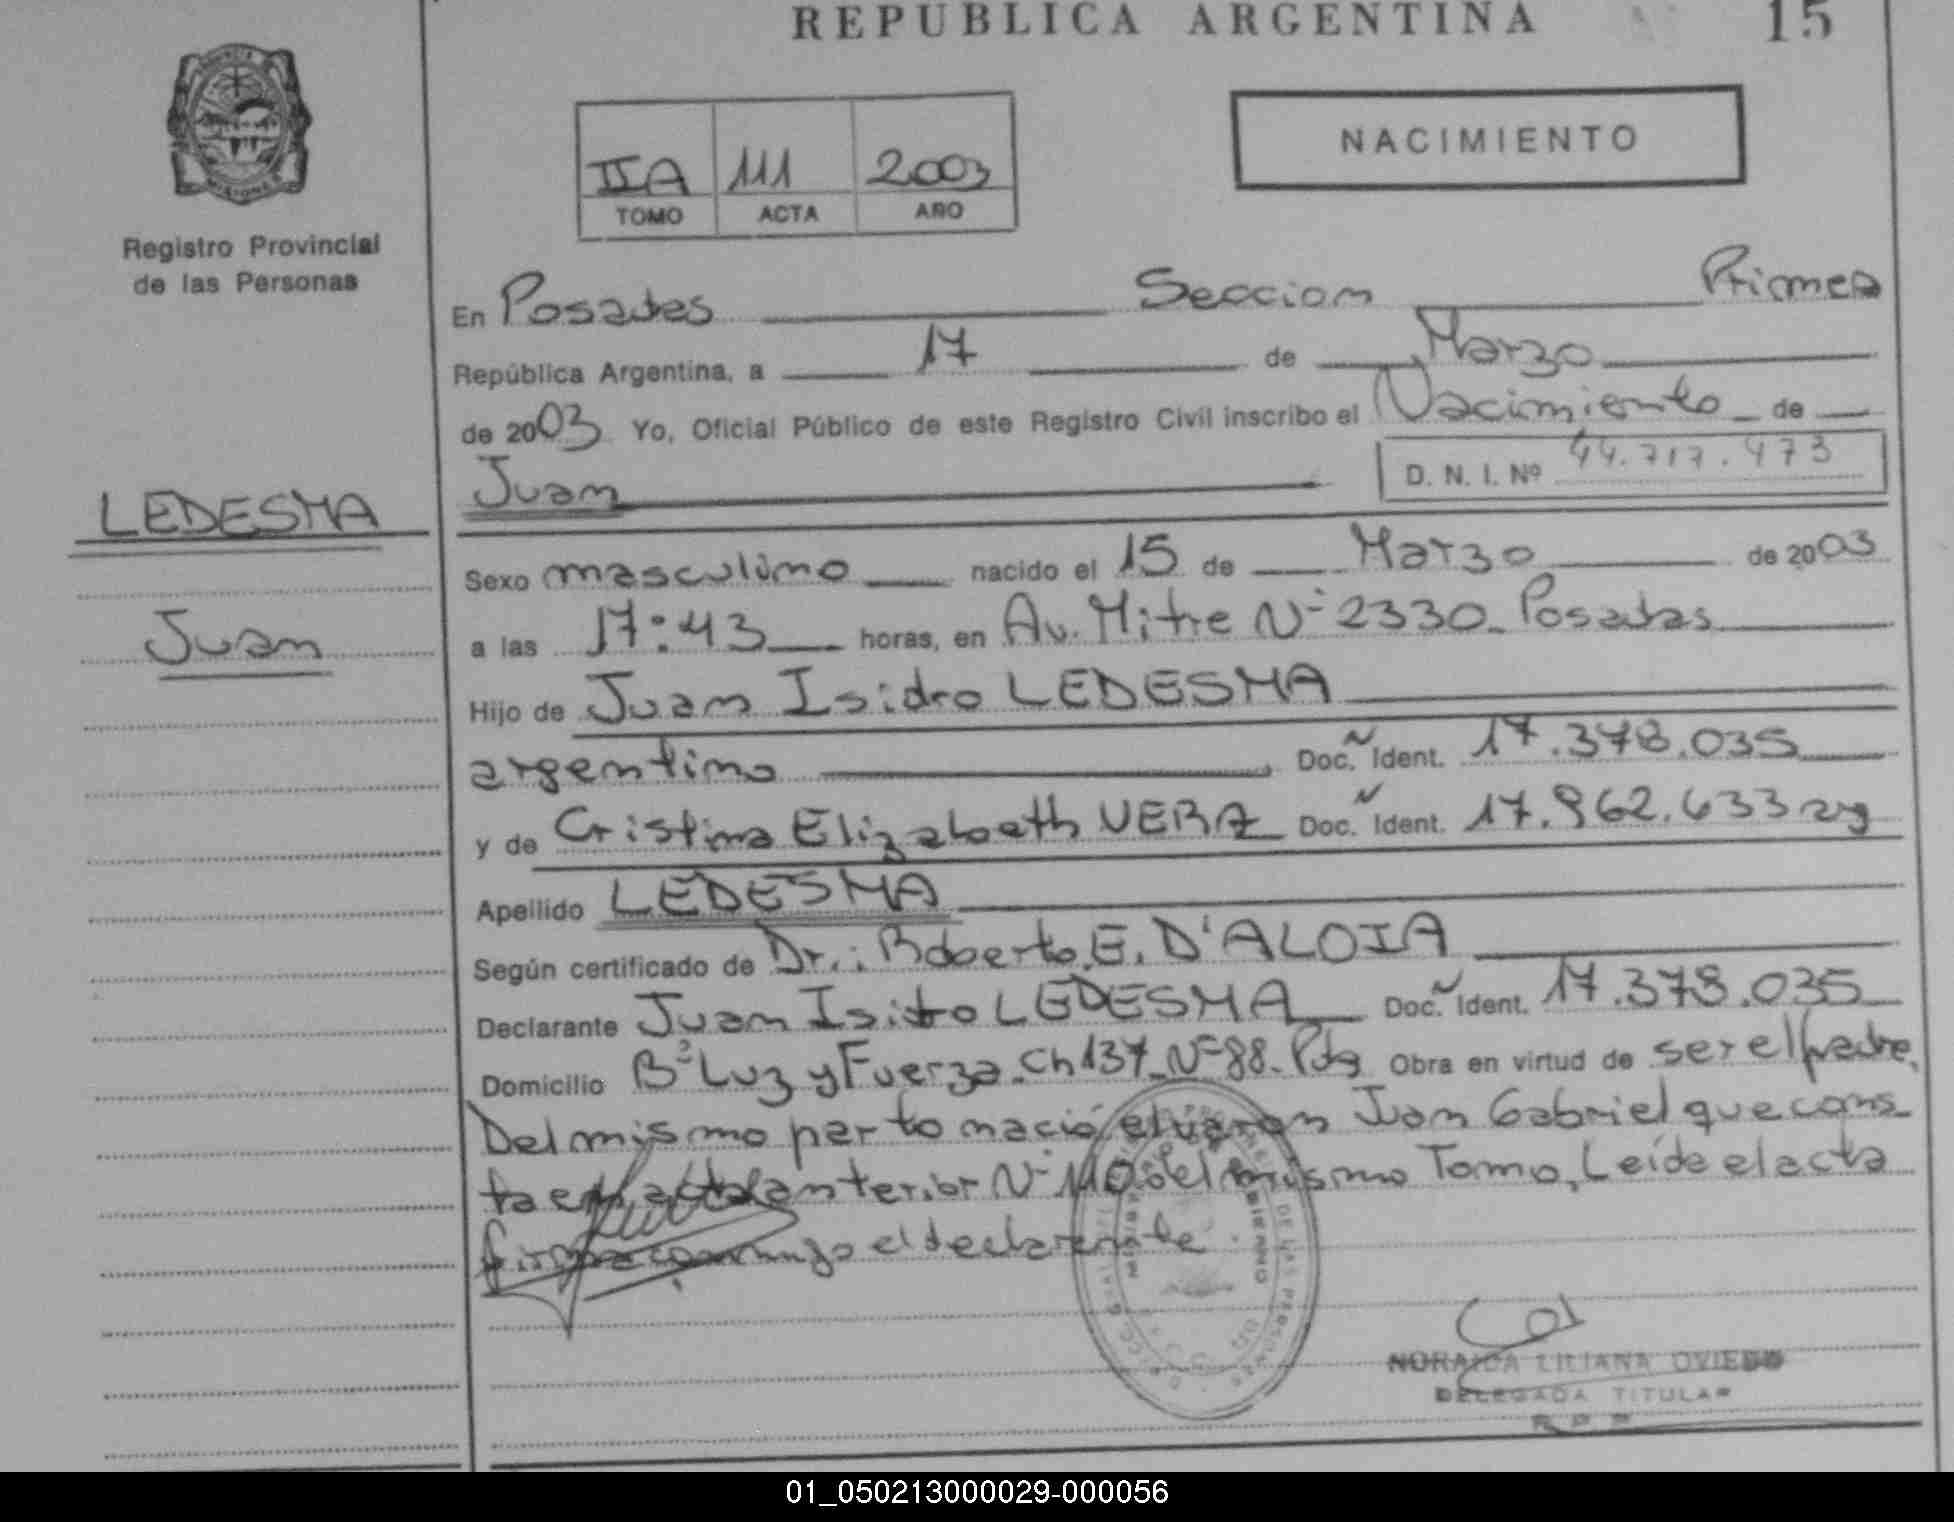 REPUBLICA ARGENTINA 15
Registro Provincial
de las Personas
IIA 111 2003
TOMO ACTA AÑO
NACIMIENTO
En Posadas Seccion Primera
República Argentina, a 17 de Marzo
de 2003 Yo, Oficial Público de este Registro Civil inscribo el Nacimiento de
Juan D. N. I. Nº 44.717.473
LEDESMA
Juan
Sexo masculino nacido el 15 de Marzo de 2003
a las 17:43 horas, en Av. Mitre Nº 2330 Posadas
Hijo de Juan Isidro LEDESMA
argentino Doc. Ident. 17.378.035
y de Cristina Elizabeth VERA Doc. Ident. 17.962.633 arg
Apellido LEDESMA
Según certificado de Dr.: Roberto E. D'ALOIA
Declarante Juan Isidro LEDESMA Doc. Ident. 17.378.035
Domicilio Bº Luz y Fuerza. Ch 137 Nº 88. Pdas Obra en virtud de ser el padre.
Del mismo parto nació el varon Juan Gabriel que cons
ta en acta anterior Nº 110 del mismo Tomo, Leída el acta
firma conmigo el declarante
NORAIDA LILIANA OVIEDO
DELEGADA TITULAR
01_050213000029-000056